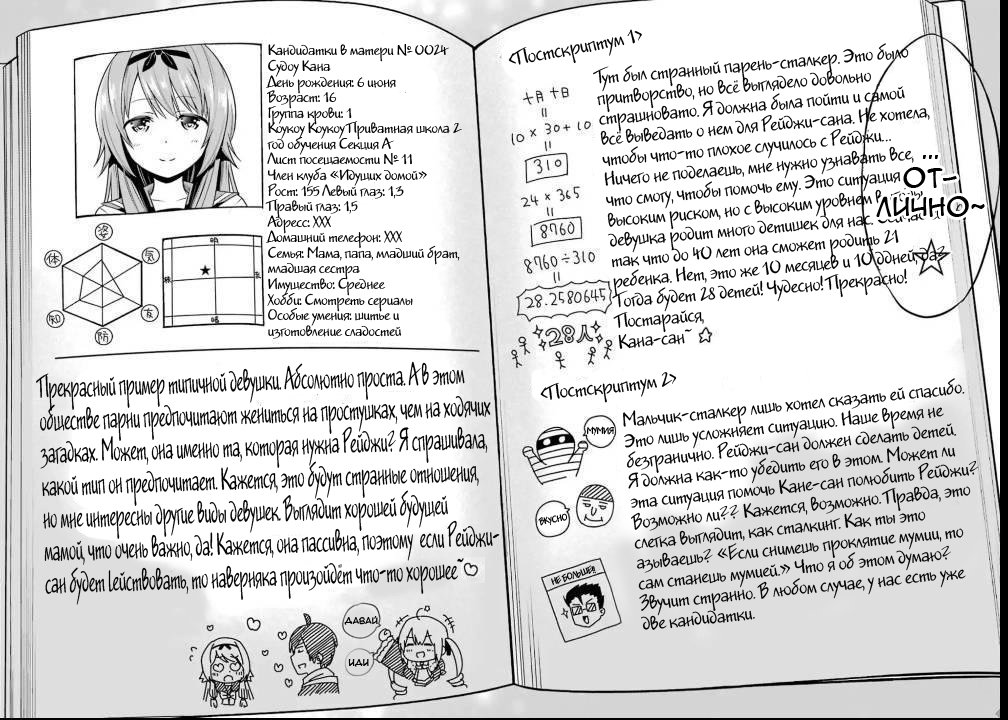 Кандидатки в матери № 0024
Судоу Кана
День рождения: 6 июня
Возраст: 16
Группа крови: 1
Коукоу Коукоу Приватная школа 2-
год обучения Секция А
Лист посещаемости № 11
Член клуба «Идущих домой»
Рост: 155 Левый глаз: 1,3
Правый глаз: 1,5
Адрес: XXX
Домашний телефон: XXX
Семья: Мама, папа, младший брат,
младшая сестра
Имущество: Среднее
Хобби: Смотреть сериалы
Особые умения: шитье и
изготовление сладостей
姿
体
気
知
友
防
Прекрасный пример типичной девушки. Абсолютно проста. А в этом
обществе парни предпочитают жениться на простушках, чем на ходячих
загадках. Может, она именно та, которая нужна Рейджи? Я спрашивала,
какой тип он предпочитает. Кажется, это будут странные отношения,
но мне интересны другие виды девушек. Выглядит хорошей будущей
мамой, что очень важно, да! Кажется, она пассивна, поэтому если Рейджи-
сан будет действовать, то наверняка произойдёт что-то хорошее~♡
ДАВАЙ
ИДИ
<Постскриптум 1>
十月 十日
=
10 × 30 + 10
=
310
24 × 365
=
8760
8760 ÷ 310
=
28.2580645
28人
Тут был странный парень-сталкер. Это было
притворство, но всё выглядело довольно
страшновато. Я должна была пойти и самой
всё выведать о нем для Рейджи-сана. Не хотела,
чтобы что-то плохое случилось с Рейджи...
Ничего не поделаешь, мне нужно узнавать все,
что смогу, чтобы помочь ему. Это ситуация
высоким риском, но с высоким уровнем
девушка родит много детишек для нас.
так что до 40 лет она сможет родить 21
ребенка. Нет, это же 10 месяцев и 10 дней
Тогда будет 28 детей! Чудесно! Прекрасно!
Постарайся,
Кана-сан~ ☆
...
ОТ-
ЛИЧНО~
☆
<Постскриптум 2>
МУМИЯ
ВКУСНО
НЕ БОЛЬШЕ!!
Мальчик-сталкер лишь хотел сказать ей спасибо.
Это лишь усложняет ситуацию. Наше время не
безгранично. Рейджи-сан должен сделать детей.
Я должна как-то убедить его в этом. Может ли
эта ситуация помочь Кане-сан полюбить Рейджи?
Возможно ли?? Кажется, возможно. Правда, это
слегка выглядит, как сталкинг. Как ты это
азываешь? «Если снимешь проклятие мумии, то
сам станешь мумией.» Что я об этом думаю?
Звучит странно. В любом случае, у нас есть уже
две кандидатки.